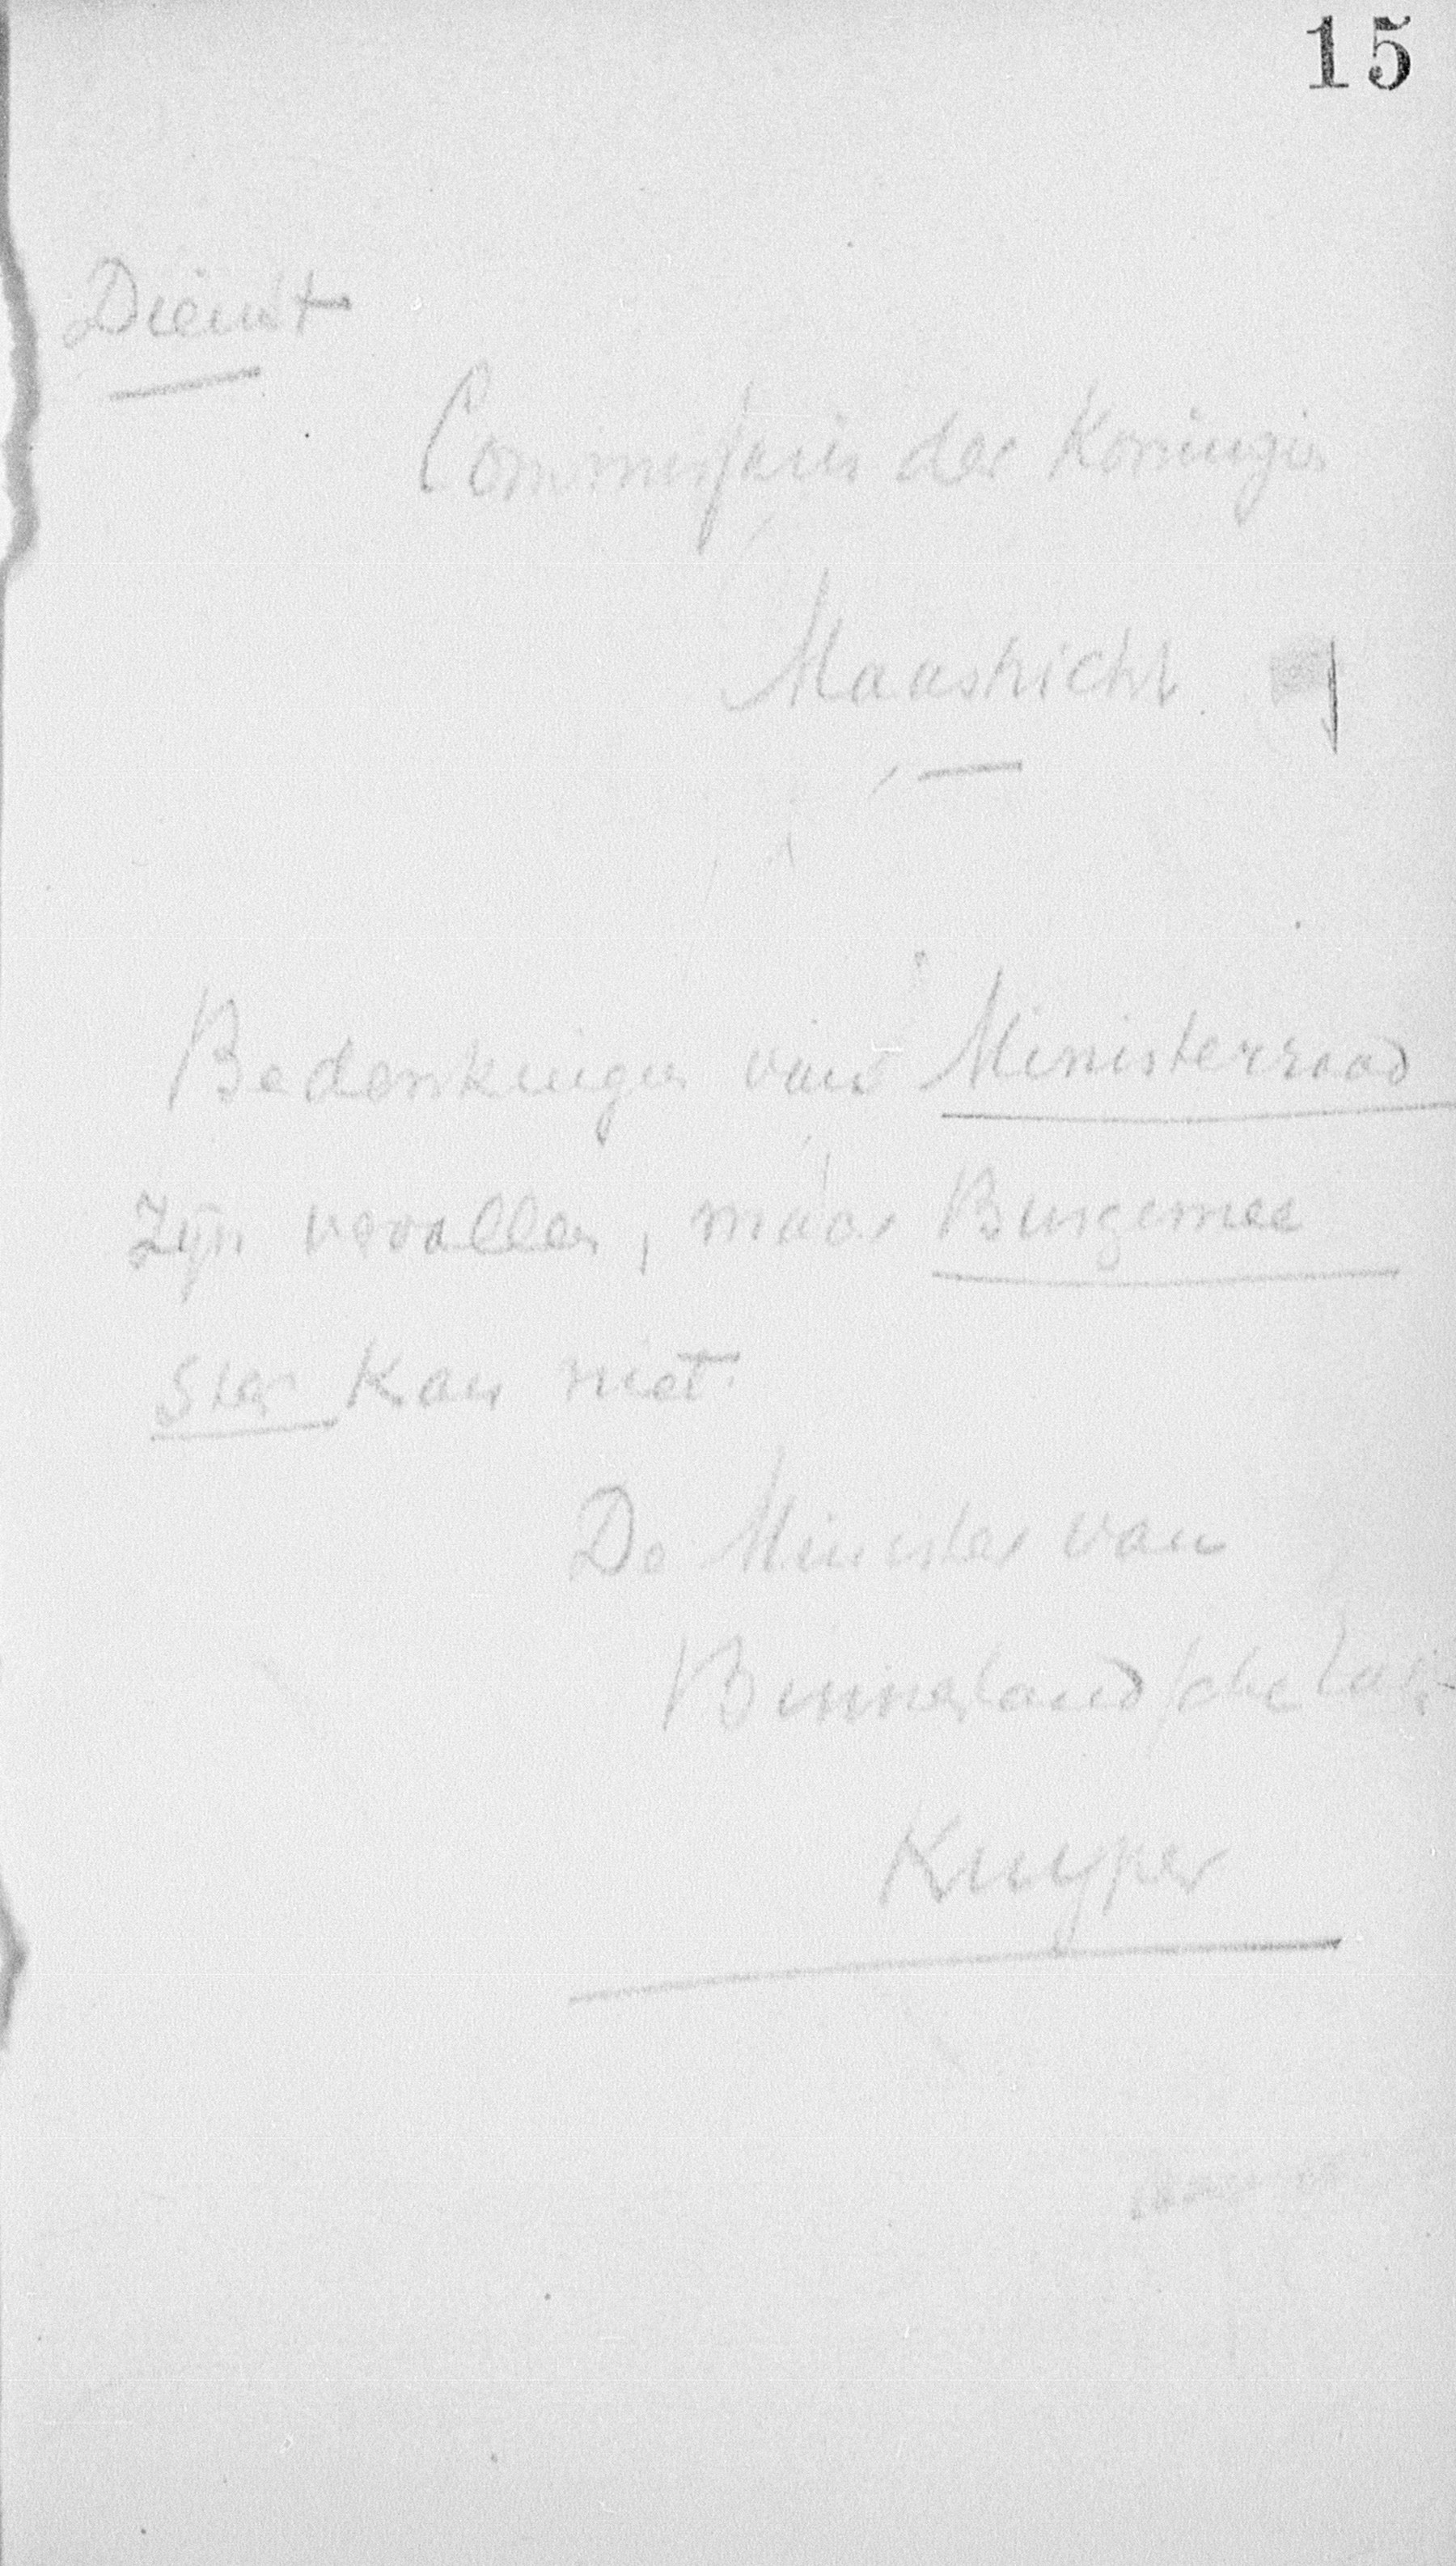 15
Dienst
Commissaris der Koningin
Maastricht
Bedenkingen van Ministerraad
zijn vervallen, maar Burgemee
ster kan niet.
De Minister van
Binnenlandsche Zak
Kuyper